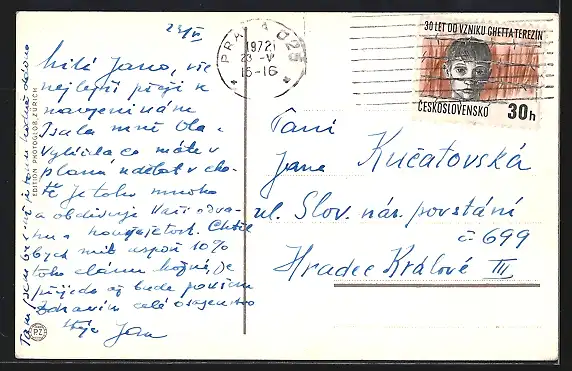 23/V
Milá Jano, vše
nejlepší přeji k
narozeninám
Psala mně Ola.
Vylíčila co máte v
plánu udělat v cha-
tě. Je toho mnoho
a obdivuji Vaši odva-
hu a houževnatost. Chtěl
bych mít aspoň 10%
toho elánu.
přijedu až bude
Zdravím celé osazenstvo
Váš Jan
EDITION PHOTOGLOB, ZÜRICH
PZ
PRAHA 025
1972
23 -V
15-16
30 LET OD VZNIKU GHETTA TEREZÍN
ČESKOSLOVENSKO 30h
Paní
Jana Kučatovská
ul. Slov. nár. povstání
č. 699
Hradec Králové III